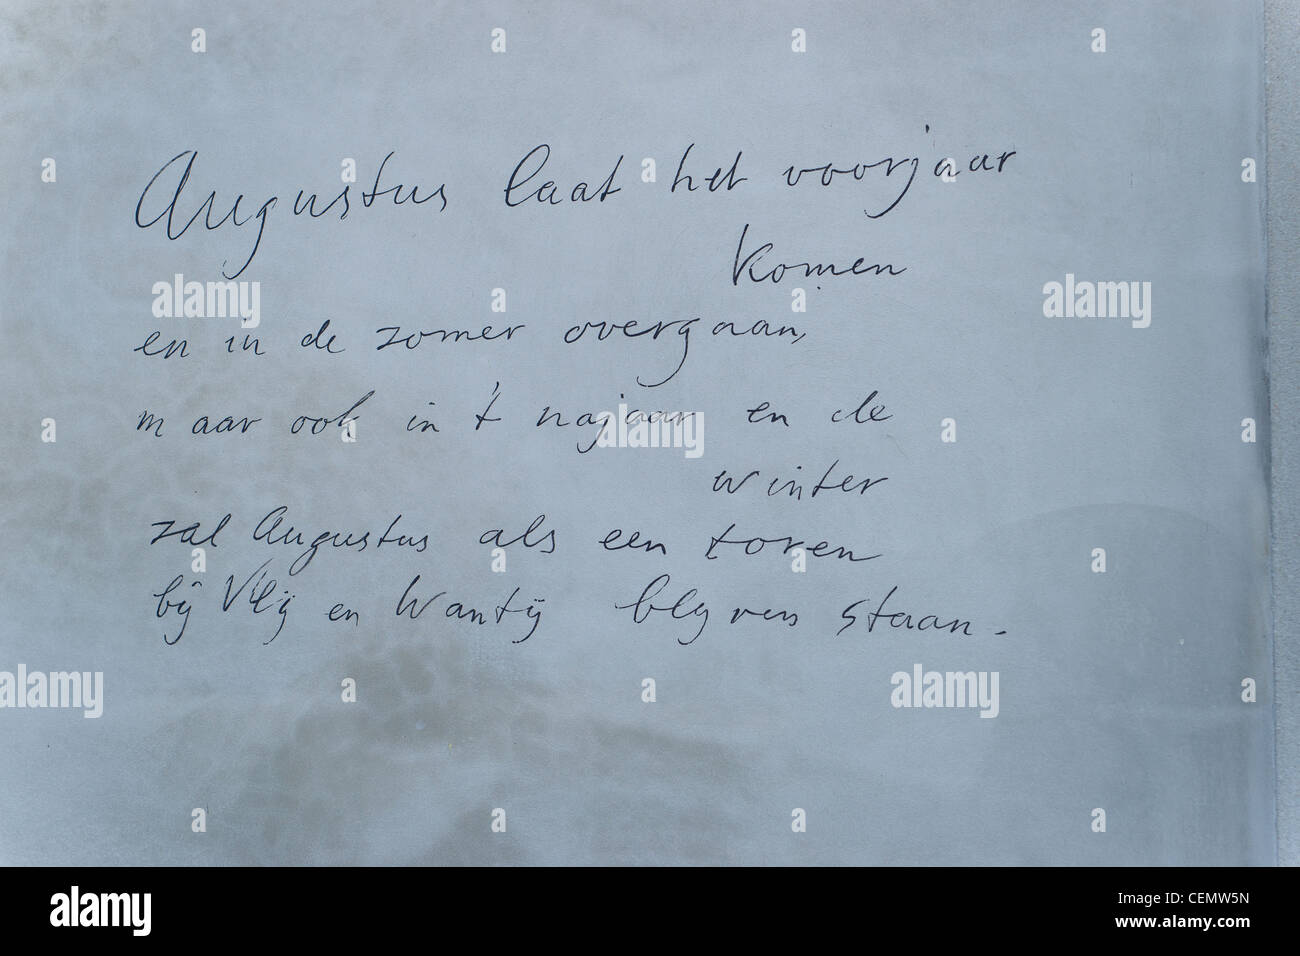 Augustus laat het voorjaar
komen
en in de zomer overgaan,
maar ook in 't najaar en de
winter
zal Augustus als een toren
bij Vlij en Wantij blyven staan.
alamy
www.alamy.com
Image ID: CEMW5N